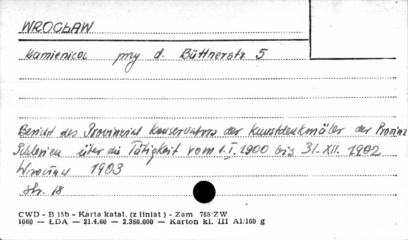 WROCŁAW
Kamienica przy d. Büttnerstr. 5
Bericht des Provinzial Konservators der Kunstdenkmäler der Provinz
Schlesien über die Tätigkeit vom 1.I.1900 bis 31.XII.1902
Wrocław 1903
str. 18
CWD - B 15b - Karta katal. (z liniat) - Zam 768 ZW
1660 — ŁDA — 21.4.60 — 2.360.000 — Karton kl. III A1/160 g